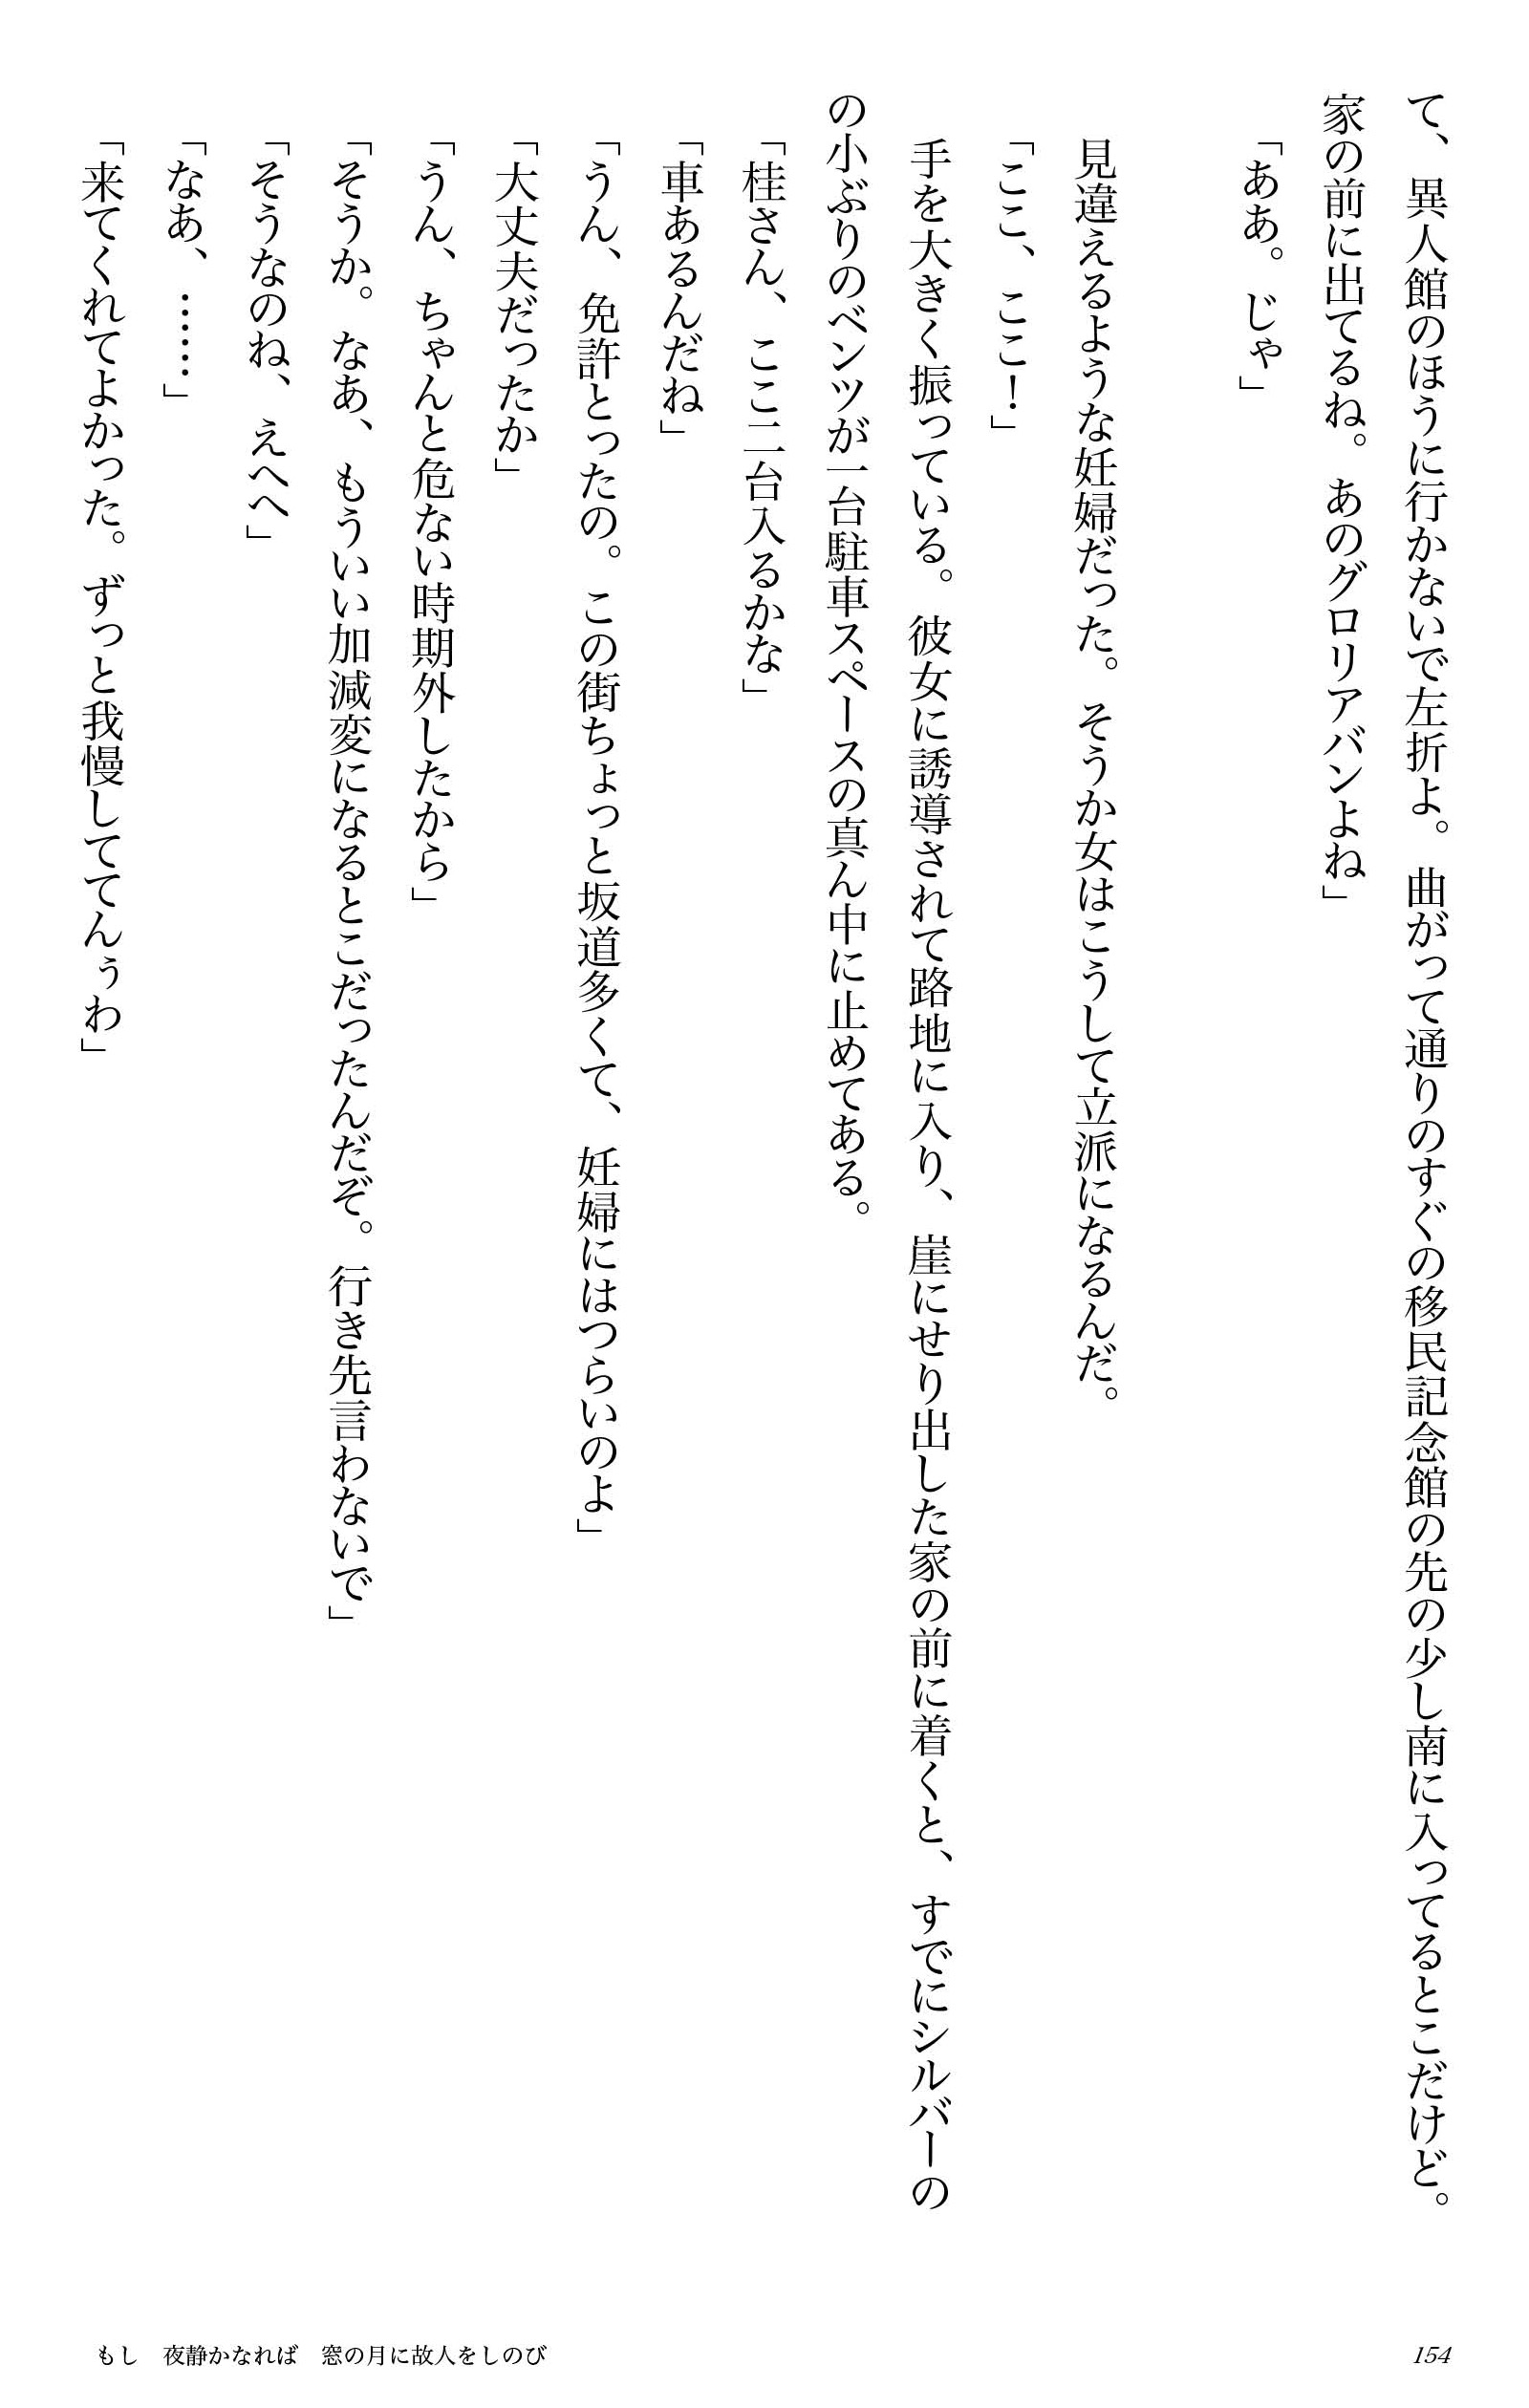 て、異人館のほうに行かないで左折よ。曲がって通りのすぐの移民記念館の先の少し南に入ってるとこだけど。
家の前に出てるね。あのグロリアバンよね」
「ああ。じゃ」
見違えるような妊婦だった。そうか女はこうして立派になるんだ。
「ここ、ここ！」
手を大きく振っている。彼女に誘導されて路地に入り、崖にせり出した家の前に着くと、すでにシルバーの
の小ぶりのベンツが一台駐車スペースの真ん中に止めてある。
「桂さん、ここ二台入るかな」
「車あるんだね」
「うん、免許とったの。この街ちょっと坂道多くて、妊婦にはつらいのよ」
「大丈夫だったか」
「うん、ちゃんと危ない時期外したから」
「そうか。なあ、もういい加減変になるとこだったんだぞ。行き先言わないで」
「そうなのね、えへへ」
「なあ、……」
「来てくれてよかった。ずっと我慢しててんぅわ」
もし　夜静かなれば　窓の月に故人をしのび
154